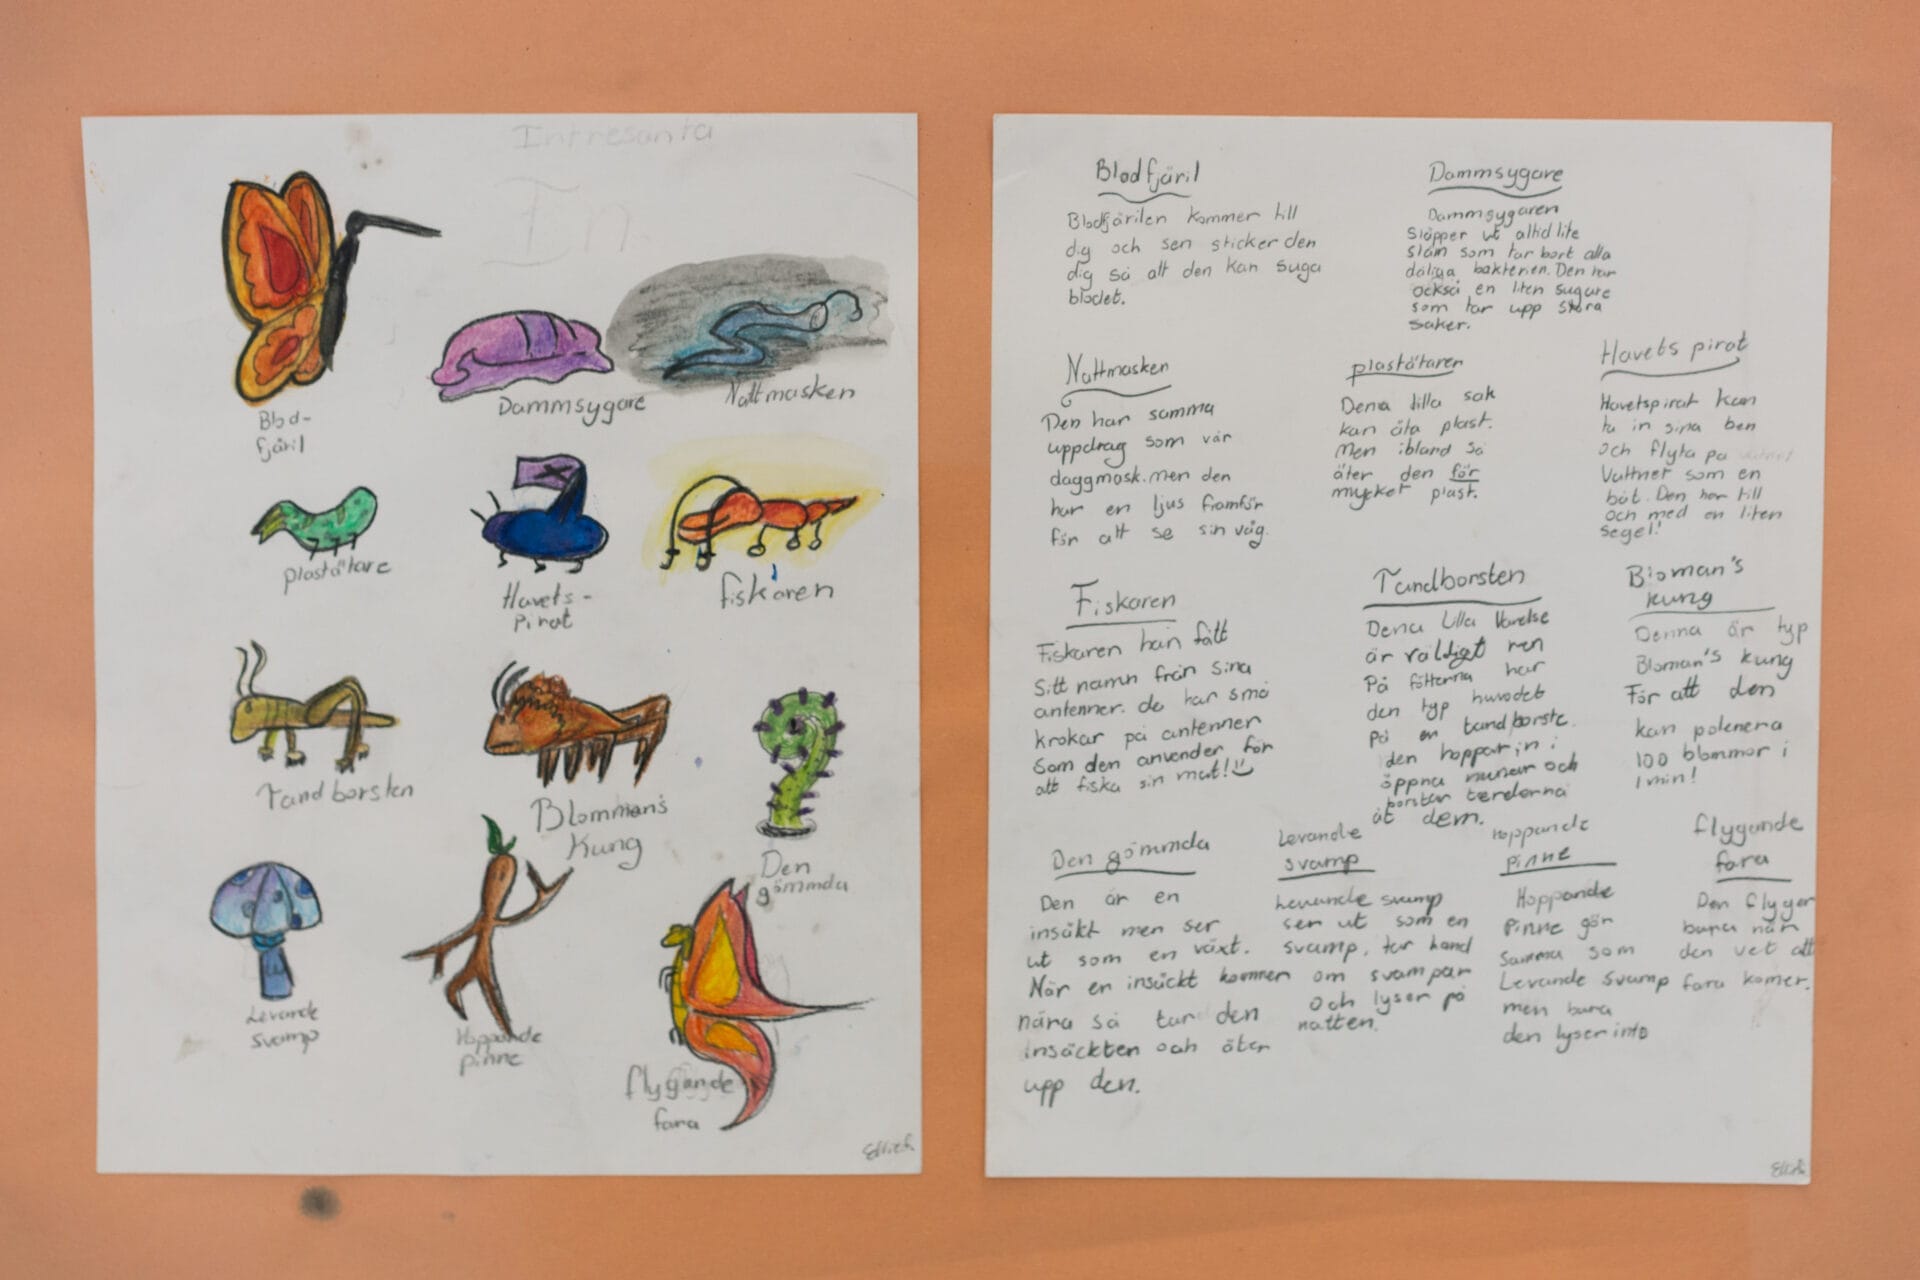 Intresanta
En
Blod-
fjäril
Dammsygare
Nattmasken
plastätare
Havets-
pirat
fiskaren
Tandborsten
Blomman's
kung
Den
gömmda
Levande
svamp
Hoppande
pinne
flygande
fara
Blodfjäril
Blodfjärilen kommer till
dig och sen sticker den
dig så att den kan suga
blodet.
Dammsygare
Dammsygaren
Släpper ut altid lite
släm som tar bort alla
dåliga bakterien. Den har
också en liten sugare
som tar upp stora
saker.
Nattmasken
Den har samma
uppdrag som vår
daggmask. men den
har en ljus framför
för att se sin väg.
plastätaren
Dena lilla sak
kan äta plast.
Men ibland så
äter den för
mycket plast.
Havets pirat
Havetspirat kan
ta in sina ben
och flyta på
Vattnet som en
båt. Den har till
och med en liten
segel!
Fiskaren
Fiskaren han fått
Sitt namn från sina
antenner. de har små
krokar på antenner
Som den använder för
att fiska sin mat!
Tandborsten
Dena lilla Varelse
är väldigt ren
På fötterna har
den typ huvudet
på en tandborste.
den hoppar in i
öppna munar och
borstar tänderna
åt dem.
Bloman's
kung
Denna är typ
Bloman's kung
För att den
kan polenera
100 blommor i
1 min!
Den gömmda
Den är en
insäkt men ser
ut som en växt.
När en insäckt kommer
nära så tar den
insäckten och äter
upp den.
Levande
svamp
Levande svamp
ser ut som en
svamp, tar hand
om svampar
och lyser på
natten.
Hoppande
pinne
Hoppande
Pinne gör
samma som
Levande svamp
men bara
den lyser inte
flygande
fara
Den flyger
bara när
den vet att
fara komer.